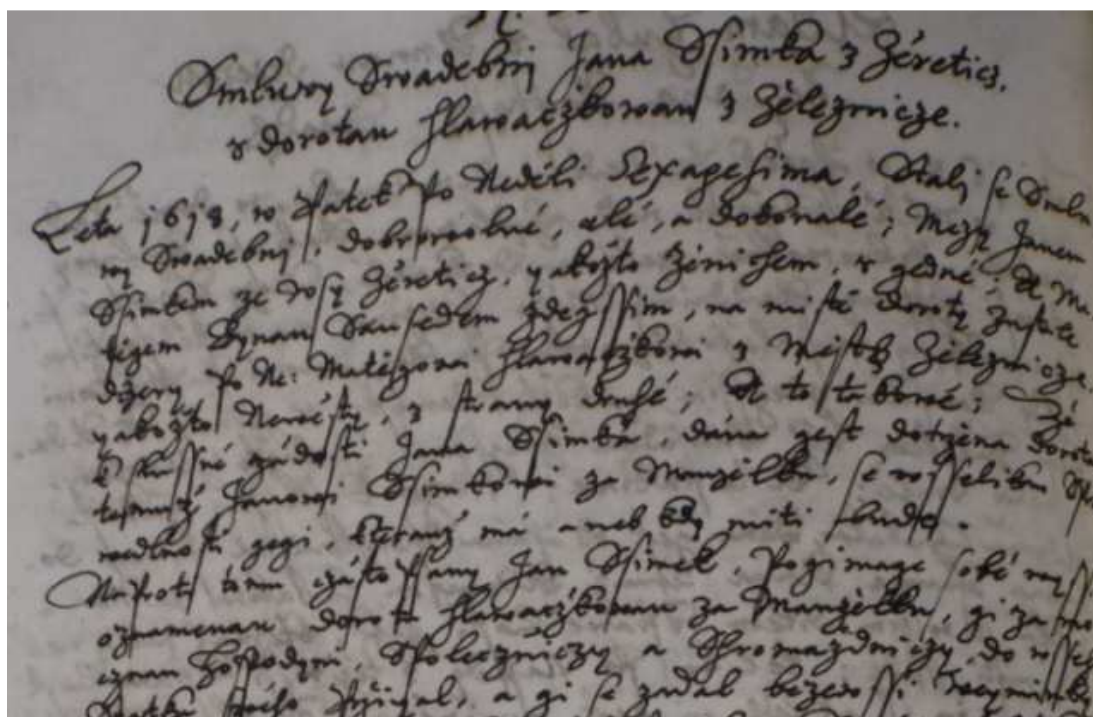 Smluwy Swadebnj Jana Ssimka z Žereticz,
s dorotau hlawaczkowau z Železnicze.
Leta 1618, w Patek Po Neděli Sexagesima, Stalj se Smlu
wy Swadebnj, dobrowolné, celé, a dokonalé; Mezy Janem
Ssimkem ze wsy Žereticz, yakožto ženichem, z gedné; A Ma
Sausedem zdegssim, na mistě doroty
dczery Po Ne: Matěgowi hlawaczkowi z Městecz Železnicze
yakožto Newěsty, z strany druhé; A to takowé; Že
k slussné žádosti Jana Ssimka, dána gest dotczena dorota
témuž Janowi Ssimkowi za Manželku, se wsselikau Spra
wedlnostj gegj, kterauž má aneb kdy mitj bude.
Naprotj tomu často Psany Jan Ssimek, Pogimage sobě
oznamenau dorotu hlawaczkowau za Manželku, gi za mo
cznau hospodyni, Spoleczniczy a Shromaždniczy, do wsseho
Statku swého Přigal, a gi se zadal